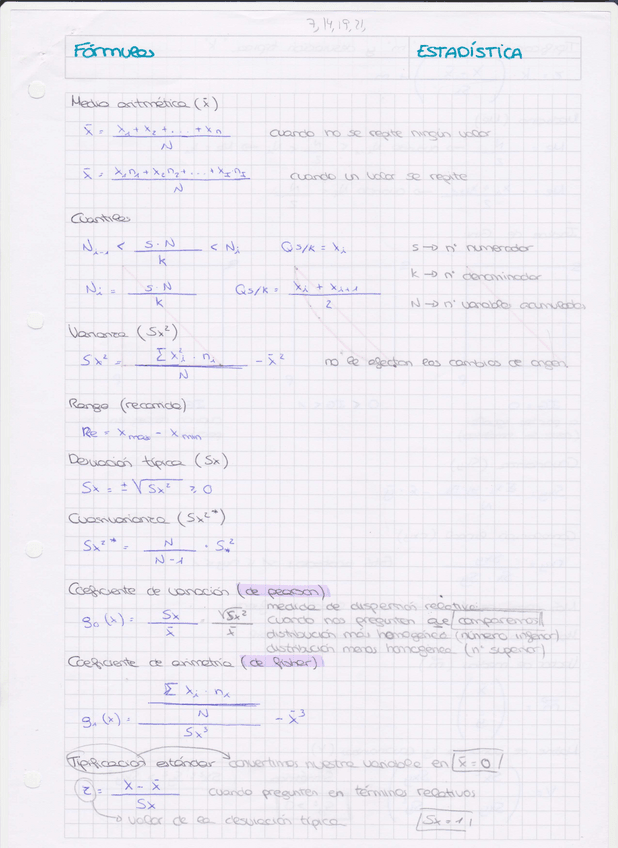 7, 14, 19, 21,
Fórmulas ESTADÍSTICA
Media aritmética (x̄)
x̄ = (x₁ + x₂ + ... + xₙ) / N cuando no se repite ningún valor
x̄ = (x₁n₁ + x₂n₂ + ... + x_I n_I) / N cuando un valor se repite
Cuantiles
N_{i-1} < (s · N) / k < N_i Q s/k = x_i s → nº numerador
k → nº denominador
N_i = (s · N) / k Q s/k = (x_i + x_{i+1}) / 2 N → nº variables acumuladas
Varianza (Sx²)
Sx² = (Σ x_i² · n_i) / N − x̄² no le afectan los cambios de origen
Rango (recorrido)
Re = x max − x min
Desviación típica (Sx)
Sx = ± √Sx² ≥ 0
Cuasivarianza (Sx²*)
Sx²* = N / (N−1) · S*²
Coeficiente de variación (de pearson)
medida de dispersión relativa
g₀(x) = Sx / x̄ = √Sx² / x̄ cuando nos pregunten que comparemos
distribución más homogénea (número inferior)
distribución menos homogénea (nº superior)
Coeficiente de asimetría (de fisher)
g₁(x) = ((Σ x_i · n_i) / N) / Sx³ − x̄³
Tipificación estándar convertimos nuestra variable en x̄ = 0
z = (x − x̄) / Sx cuando pregunten en términos relativos
→ valor de la desviación típica Sx = 1